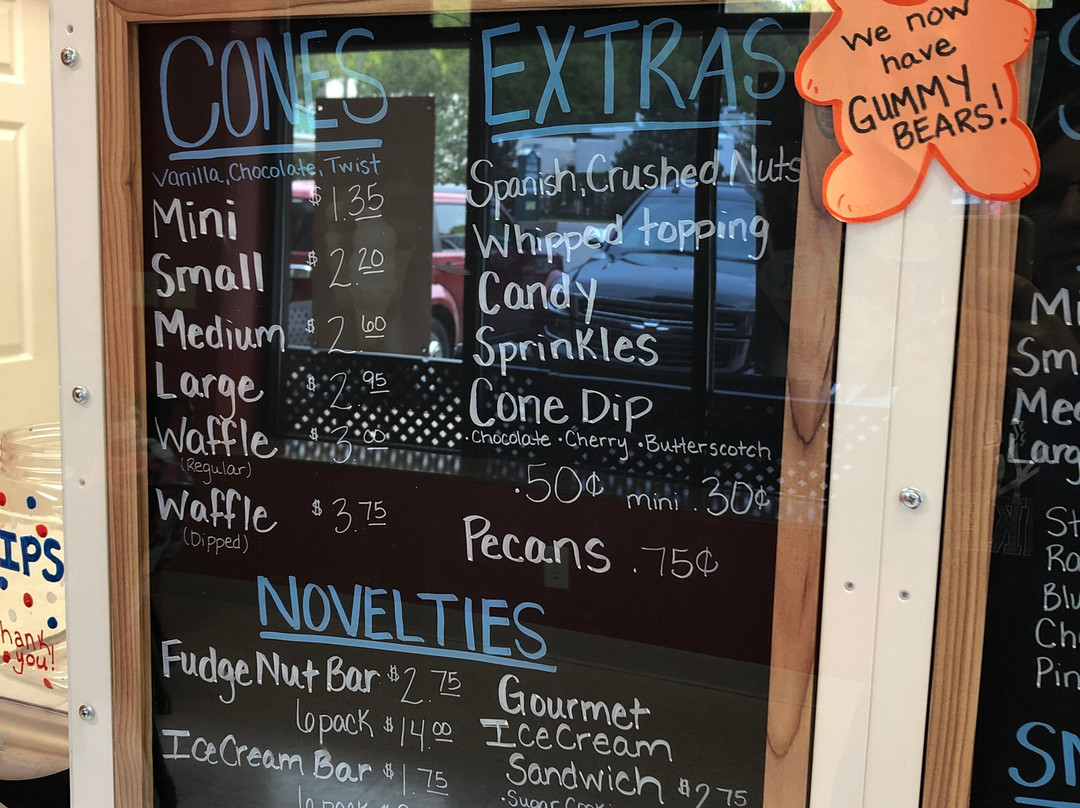 CONES
Vanilla, Chocolate, Twist
Mini $1.35
Small $2.20
Medium $2.60
Large $2.95
Waffle $3.00
(Regular)
Waffle $3.75
(Dipped)
EXTRAS
Spanish, Crushed Nuts
Whipped topping
Candy
Sprinkles
Cone Dip
·Chocolate ·Cherry ·Butterscotch
.50¢ mini .30¢
Pecans .75¢
NOVELTIES
Fudge Nut Bar $2.75
6 pack $14.00
Ice Cream Bar $1.75
6 pack
Gourmet
Ice Cream
Sandwich $2.75
·Sugar
We now
have
GUMMY
BEARS!
IPS
hank
you!
Mi
Sm
Me
Larg
St
Ra
Blu
Ch
Pin